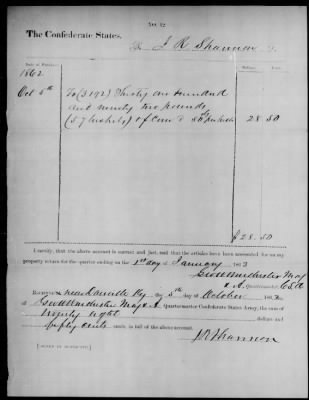 No. 12
The Confederate States,
To J R Shannon
Date of Purchase.
Dollars. Cents.
1862
Oct 5th To (3192) Thirty one hundred
and ninety two pounds
(57 bushels) of Corn @ 50c per bushel 28 50
$28.50
I certify, that the above account is correct and just, and that the articles have been accounted for on my
property return for the quarter ending on the 1st day of January 1863
Maj
A. Quartermaster
Received near Danville Ky the 5th day of October 1862, of
Maj & A. Quartermaster Confederate States Army, the sum of
Twenty eight dollars and
fifty cents cents, in full of the above account.
J R Shannon
[SIGNED IN DUPLICATE.]